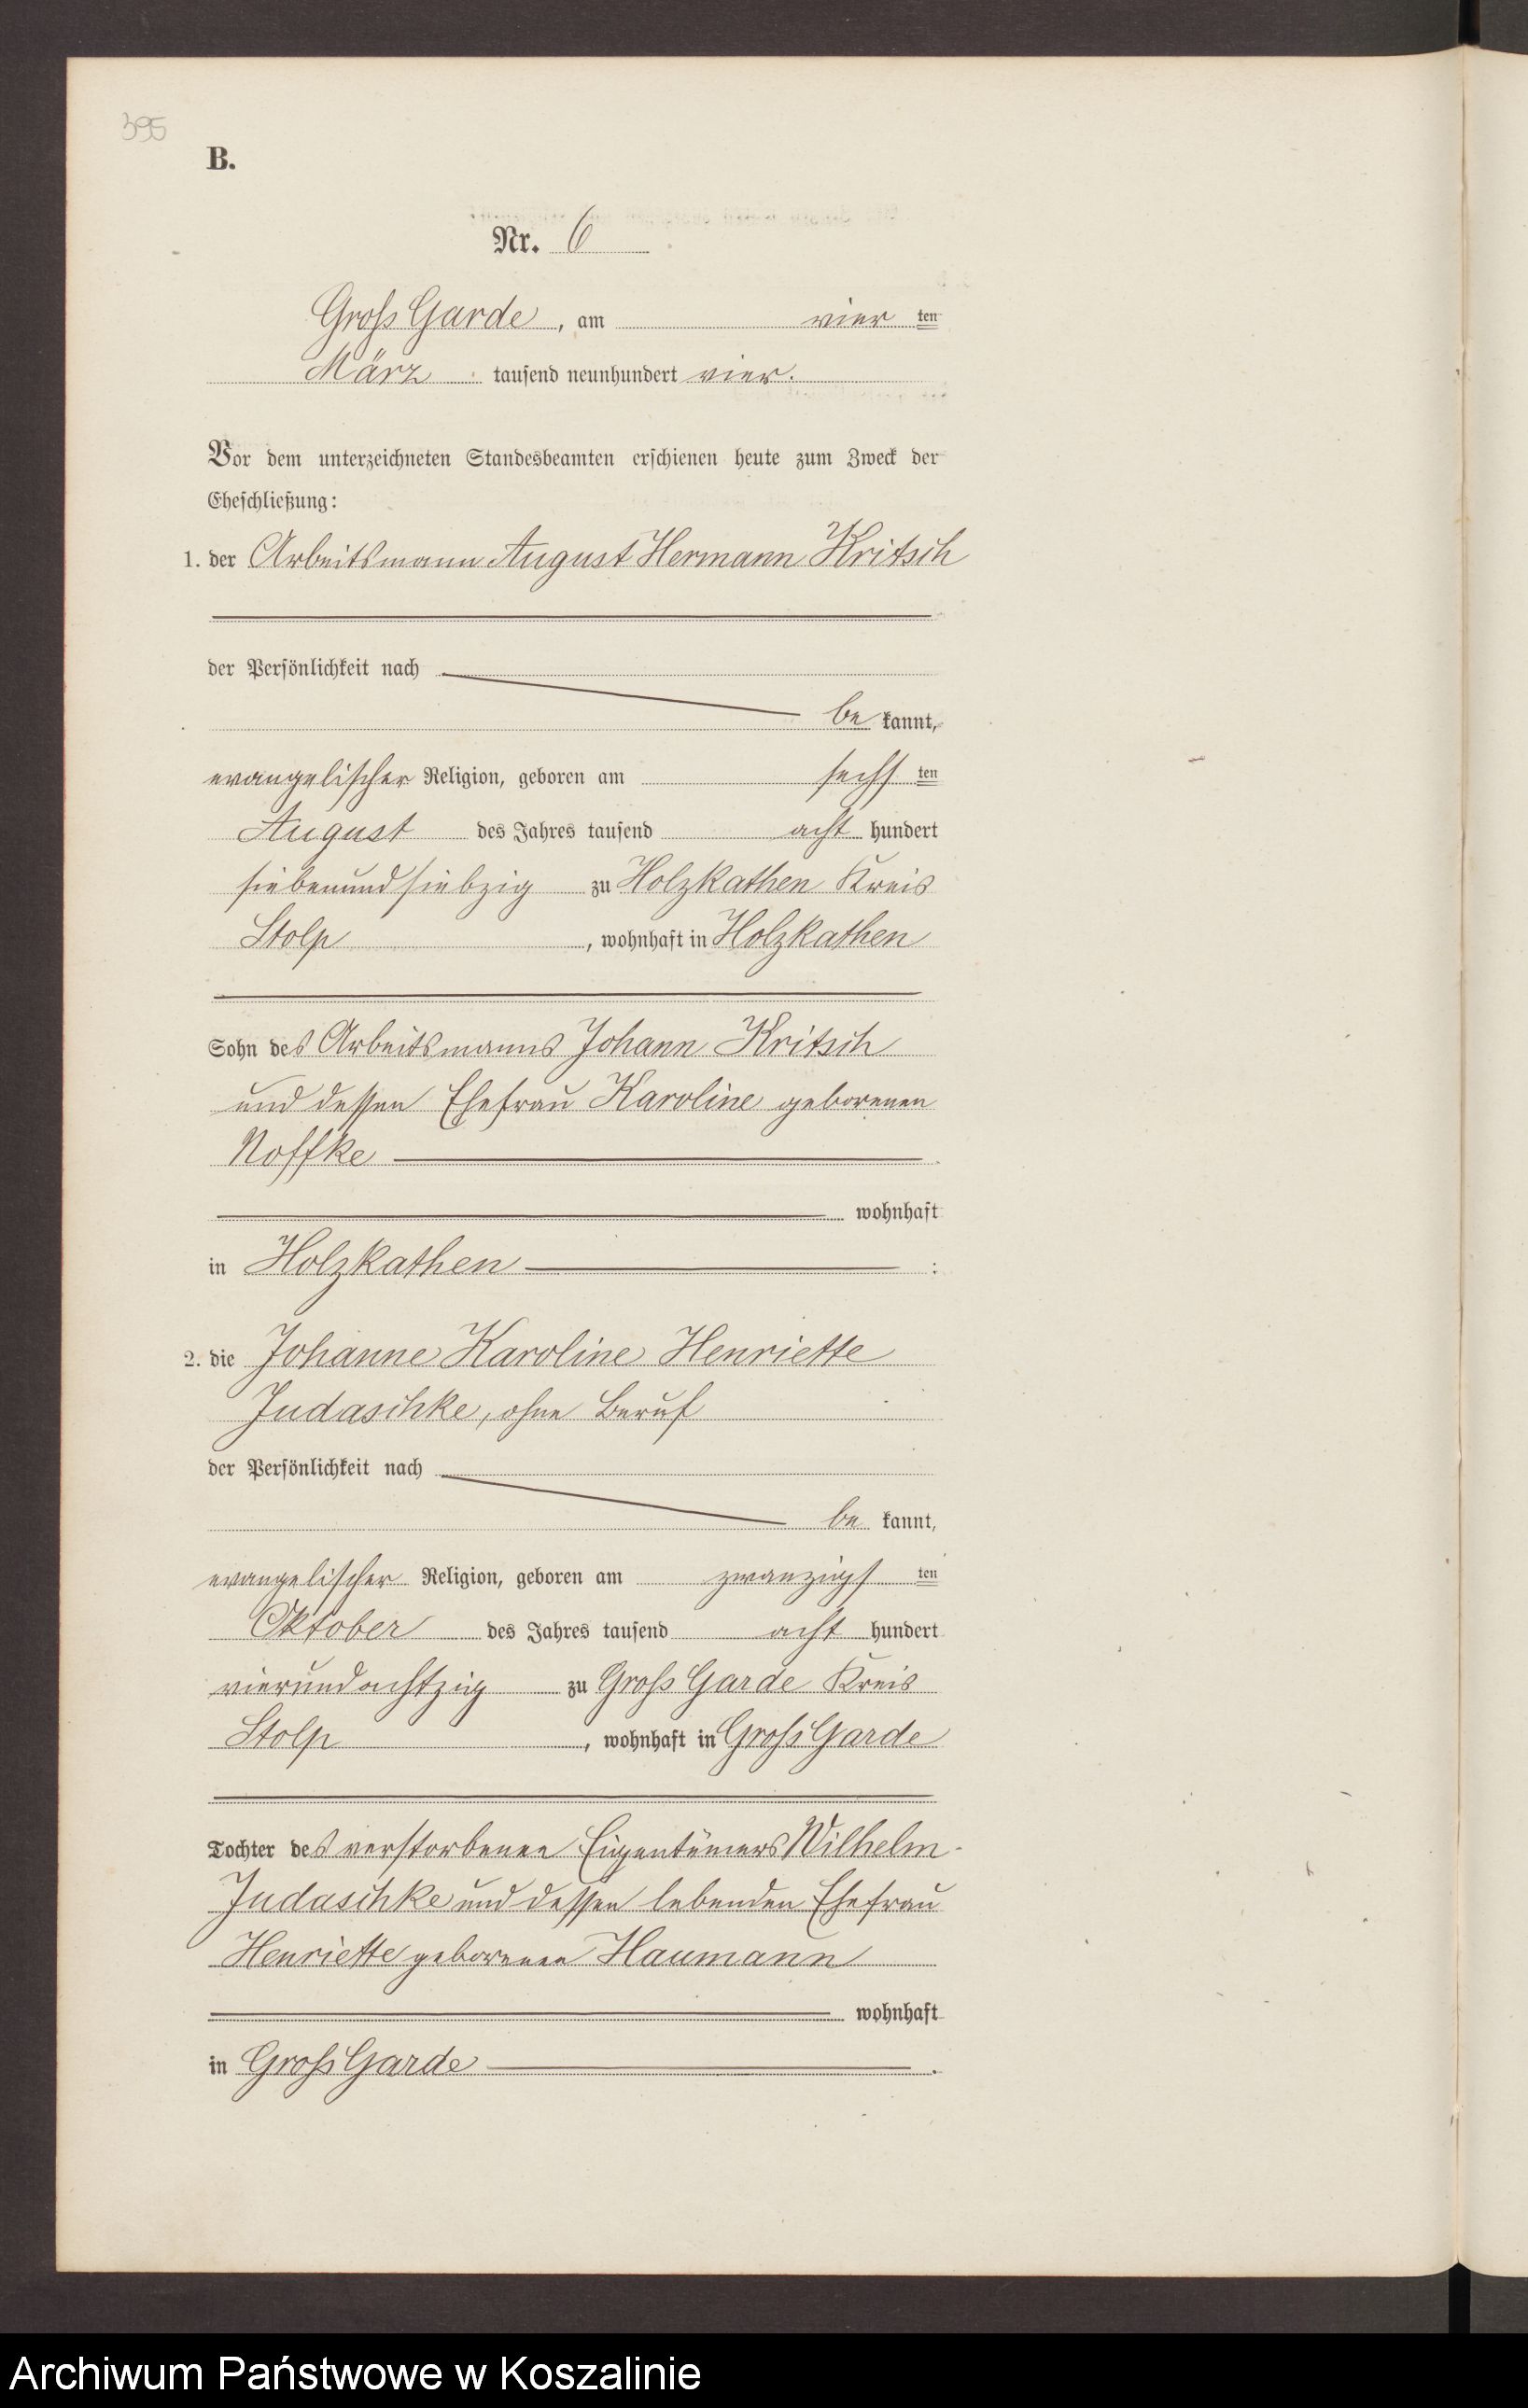 395
B.
Nr. 6
Groß Garde, am vier ten
März tausend neunhundert vier.
Vor dem unterzeichneten Standesbeamten erschienen heute zum Zweck der
Eheschließung:
1. der Arbeitsmann August Hermann Kritsch
der Persönlichkeit nach
be kannt,
evangelischer Religion, geboren am sechs ten
August des Jahres tausend acht hundert
siebenundsiebzig zu Holzkathen Kreis
Stolp, wohnhaft in Holzkathen
Sohn des Arbeitsmanns Johann Kritsch
und dessen Ehefrau Karoline geborenen
Noffke
wohnhaft
in Holzkathen :
2. die Johanne Karoline Henriette
Judaschke, ohne Beruf
der Persönlichkeit nach
be kannt,
evangelischer Religion, geboren am zwanzigs ten
Oktober des Jahres tausend acht hundert
vierundachtzig zu Groß Garde Kreis
Stolp, wohnhaft in Groß Garde
Tochter des verstorbenen Eigentümers Wilhelm
Judaschke und dessen lebenden Ehefrau
Henriette geborenen Haumann
wohnhaft
in Groß Garde.
Archiwum Państwowe w Koszalinie